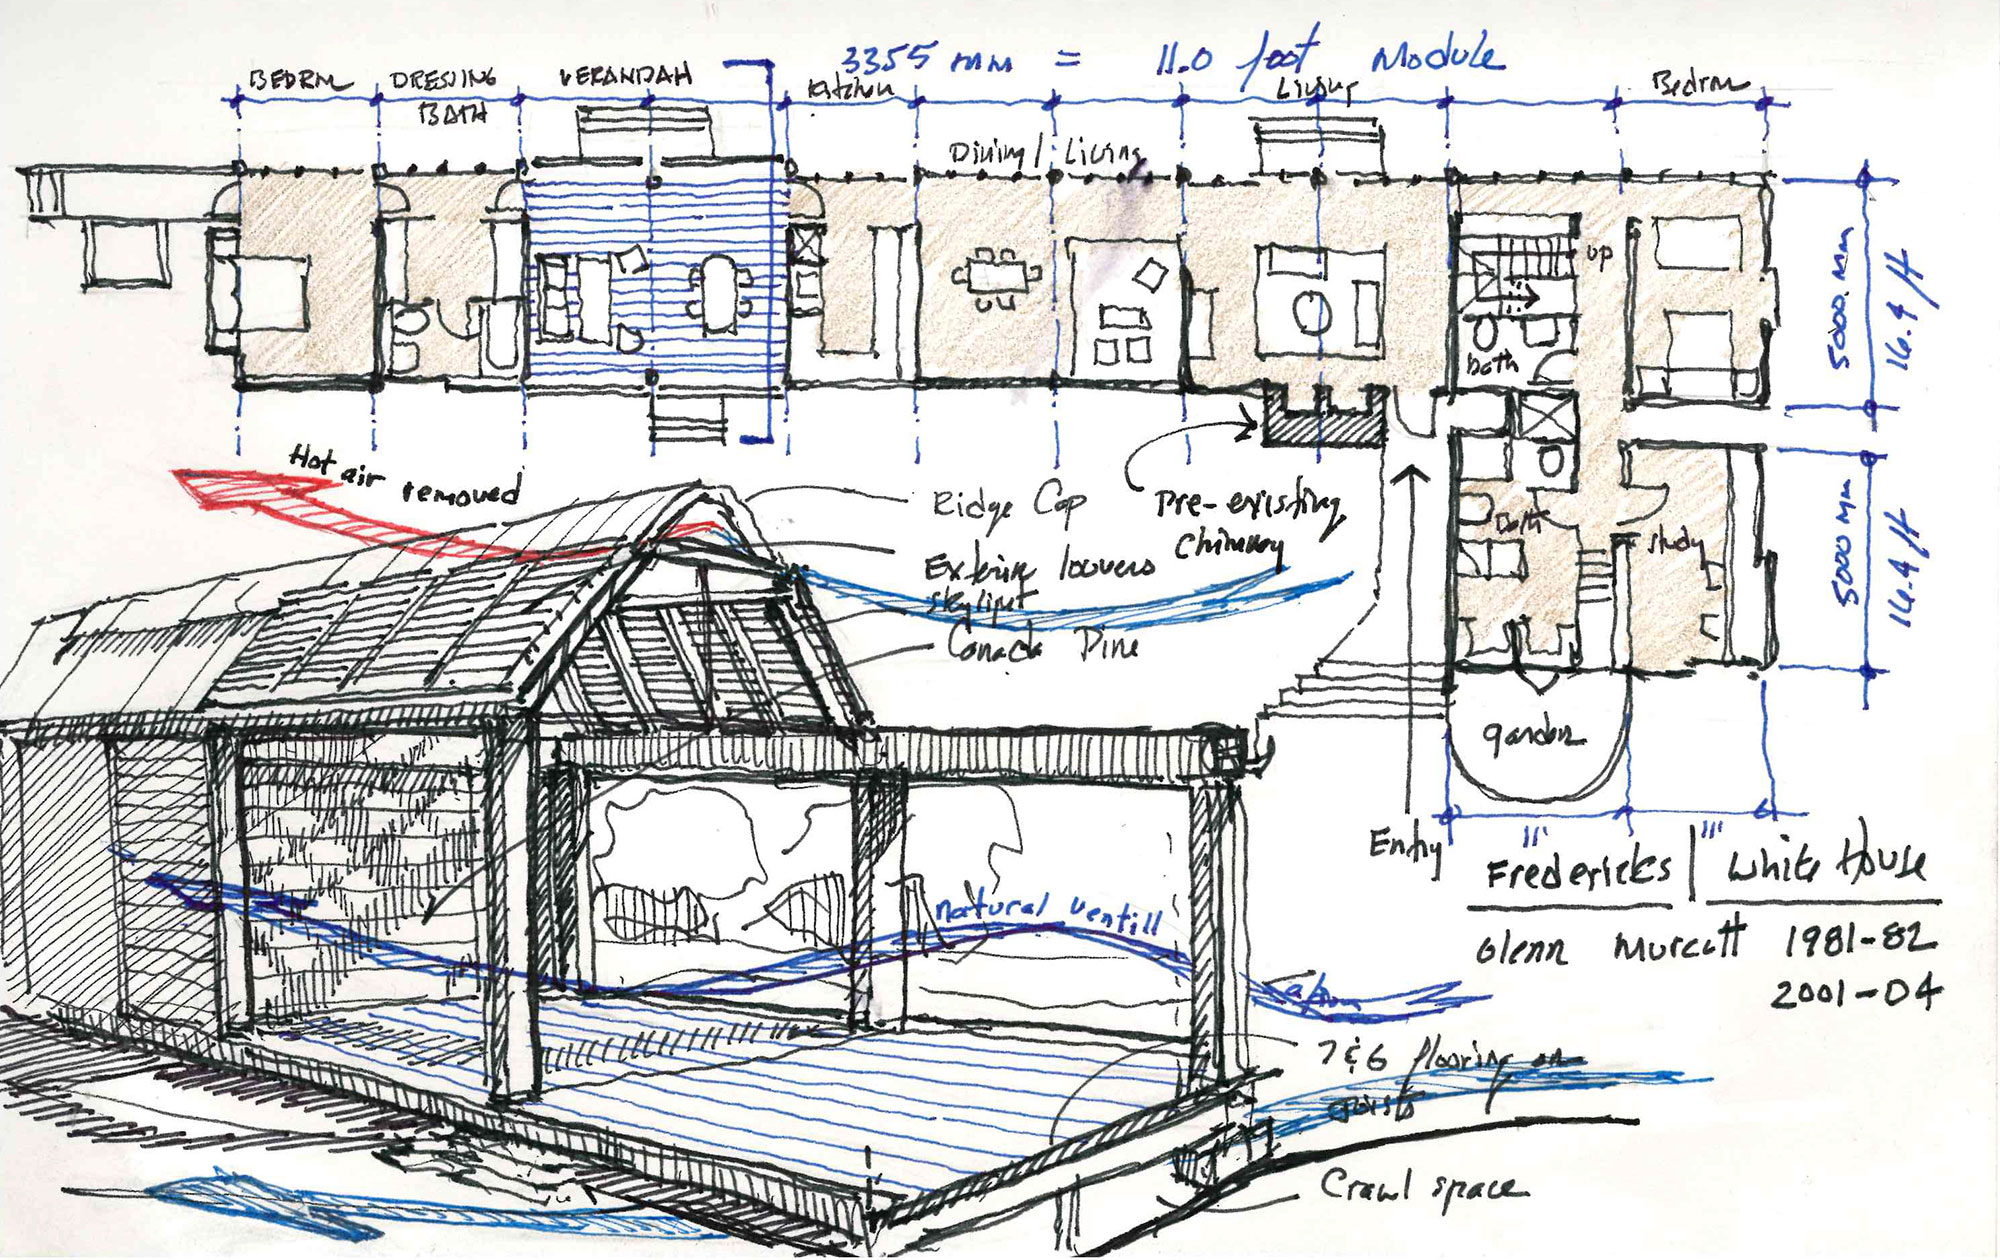 3355 mm = 11.0 foot Module
BEDRM
DRESSING
BATH
VERANDAH
Kitchen
Living
Bedrm
Dining / Living
up
bath
5000 mm
16.4 ft
Hot air removed
Ridge Cap
Pre-existing
Chimney
Bath
study
5000 mm
16.4 ft
louvers
Canada Pine
garden
Entry
11'
11'
Fredericks / White House
Glenn Murcutt 1981-82
2001-04
natural ventill
T & G flooring on
Crawl space